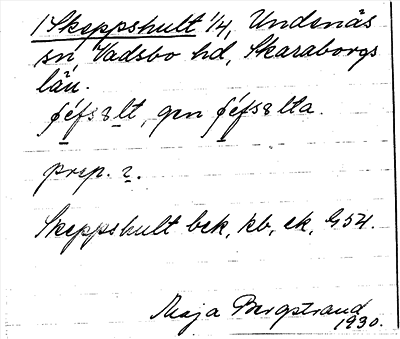 1 Skeppshult 1/4, Undenäs
sn, Vadsbo hd, Skaraborgs
län.
gen
prep. 2.
Skeppshult bek, kb, ek, G 54.
Maja Bergstrand
1930.